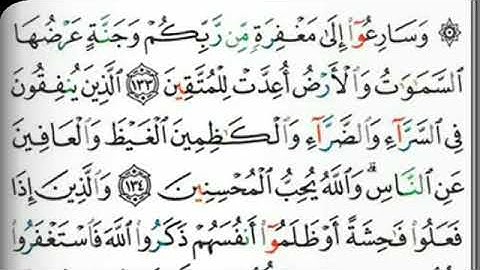 ۞ وَسَارِعُوٓا۟ إِلَىٰ مَغْفِرَةٍ مِّن رَّبِّكُمْ وَجَنَّةٍ عَرْضُهَا
ٱلسَّمَـٰوَٰتُ وَٱلْأَرْضُ أُعِدَّتْ لِلْمُتَّقِينَ ١٣٣ ٱلَّذِينَ يُنفِقُونَ
فِى ٱلسَّرَّآءِ وَٱلضَّرَّآءِ وَٱلْكَـٰظِمِينَ ٱلْغَيْظَ وَٱلْعَافِينَ
عَنِ ٱلنَّاسِ ۗ وَٱللَّهُ يُحِبُّ ٱلْمُحْسِنِينَ ١٣٤ وَٱلَّذِينَ إِذَا
فَعَلُوا۟ فَـٰحِشَةً أَوْ ظَلَمُوٓا۟ أَنفُسَهُمْ ذَكَرُوا۟ ٱللَّهَ فَٱسْتَغْفَرُوا۟